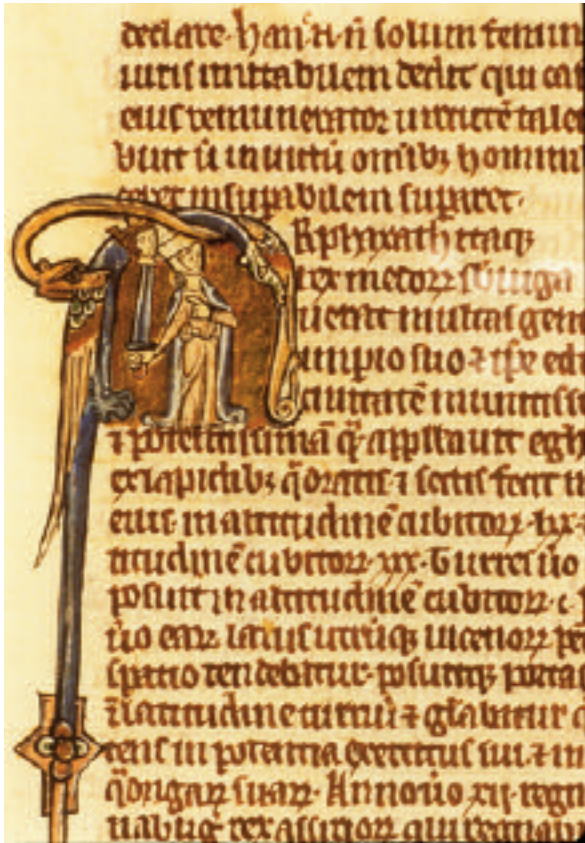 declare. Hanc n̄ solum femin
uiris imitabilem dedit qui cas
eius remunerator uirtutē tale
buit ū inuictū omībꝫ homini
insuꝑabilem suꝑaret.
Arphaxath itaqꝫ
rex medoꝝ subiuga
uerat multas gen
imperio suo ⁊ ipse edi
ciuitatē
⁊ potentissimā q̄ appllauit egb
ex lapidibꝫ q̄dratis ⁊ sectis fecit
eius· in altitudinē cubitoꝝ·
titudinē cubitoꝝ· xxx· Turres ūo
posuit in altitudinē cubitoꝝ· c·
ūo eaꝝ latus utrūqꝫ uicenoꝝ pe
spatio tendebatur· posuitqꝫ porta
altitudine turriū ⁊ gl̄abatur
tens in potentia exercitus sui· ⁊ in
q̄drigaꝝ suaꝝ· Anno ūo xii· regn
nabug̃ rex assirioꝝ qui regnab